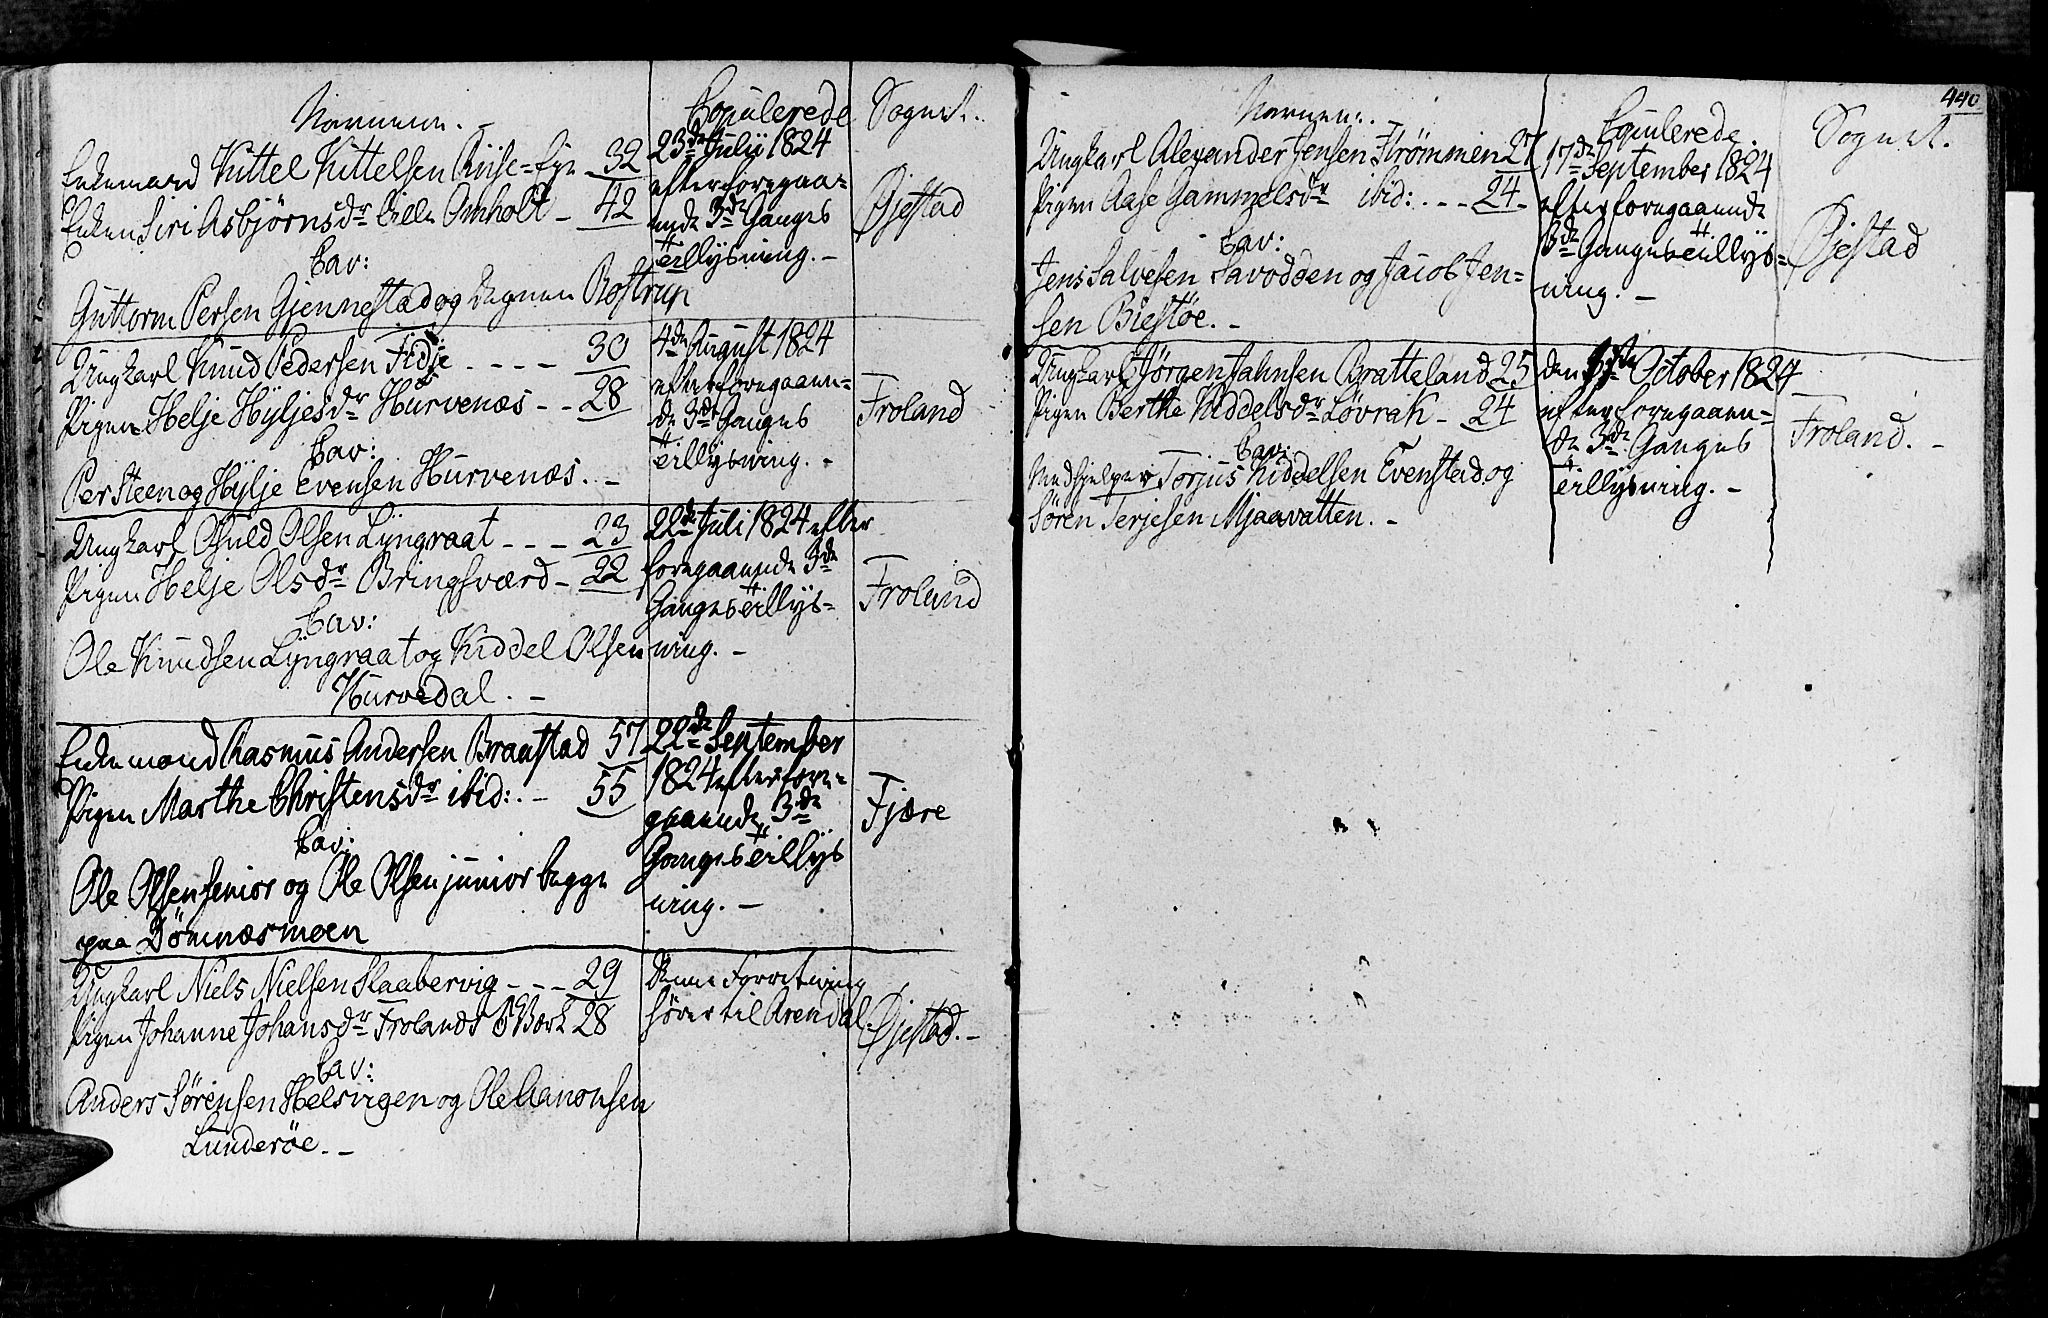 Navnene. Copulerede Sognet.
Enkemand Kittel Kittelsen Riise=Eie 32
Enken Siri Asbjørnsdr Lille Omholt - 42
Cav:
Guttorm Persen Gjennestad og Degnen Rostrup
23de Julii 1824
efter foregaa=
ende 3de Ganges
Tillysning. -
Øjestad
Ungkarl Knud Pedersen Fidje - - - - 30
Pigen Helje Hyljesdr Hurvenæs - - 28
Cav:
Per Steen og Hylje Evensen Hurvenæs. -
4de August 1824
efter foregaaen=
de 3de Ganges
Tillysning. -
Froland
Ungkarl Osuld Olsen Lyngraat - - - 23
Pigen Helje Olsdr Bringsværd - 22
Cav:
Ole Knudsen Lyngraat og Kiddel Olsen
Hurvedal. -
22de Juli 1824 efter
foregaaende 3de
Ganges Tillys=
ning. -
Froland
Enkemand Rasmus Andersen Braastad 57
Pigen Marthe Christensdr ibid:. - 55
Cav:
Ole Olsen senior og Ole Olsen junior begge
paa Dömnæsmoen
22de September
1824 efter fore=
gaaende 3de
Ganges Tillys
ning. -
Fjære
Ungkarl Niels Nielsen Slaabervig - - - 29
Pigen Johanne Johansdr Frolands Værk 28
Cav:
Anders Sørensen Helsvigen og Ole Aanonsen
Lunderöe. -
Denne Forretning
hörer til Arendal.
Øjestad. -
440
Navnene:. Copulerede. Sognet.
Ungkarl Alexander Jensen Strømmen 27
Pigen Aase Gammelsdr ibid: . - - 24 -
Cav:
Jens Salvesen Savodden og Jacob Jen=
sen Biestöe. -
17de September 1824
efter foregaaende
3de Ganges Tillys=
ning. -
Øjestad
Ungkarl Jörgen Jahnsen Bratteland 25
Pigen Berthe Kiddelsdr Lövrak - 24
Cav:
Medhjelper Torjus Kiddelsen Evenstad og
Sören Terjesen Mjaavatten. -
den October 1824
efter foregaaen=
de 3de Ganges
Tillysning. -
Froland. -